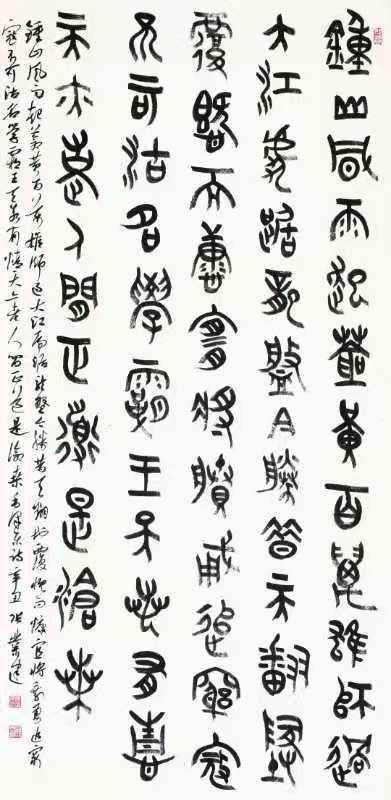 鍾山風雨起蒼黃百萬雄師過
大江虎踞龍盤今勝昔天翻地
覆慨而慷宜將賸勇追窮寇
不可沽名學霸王天若有情
天亦老人間正道是滄桑
鍾山風雨起蒼黃百萬雄師過大江虎踞龍盤今勝昔天翻地覆慨而慷宜將剩勇追窮
寇不可沽名學霸王天若有情天亦老人間正道是滄桑毛澤東詩辛丑